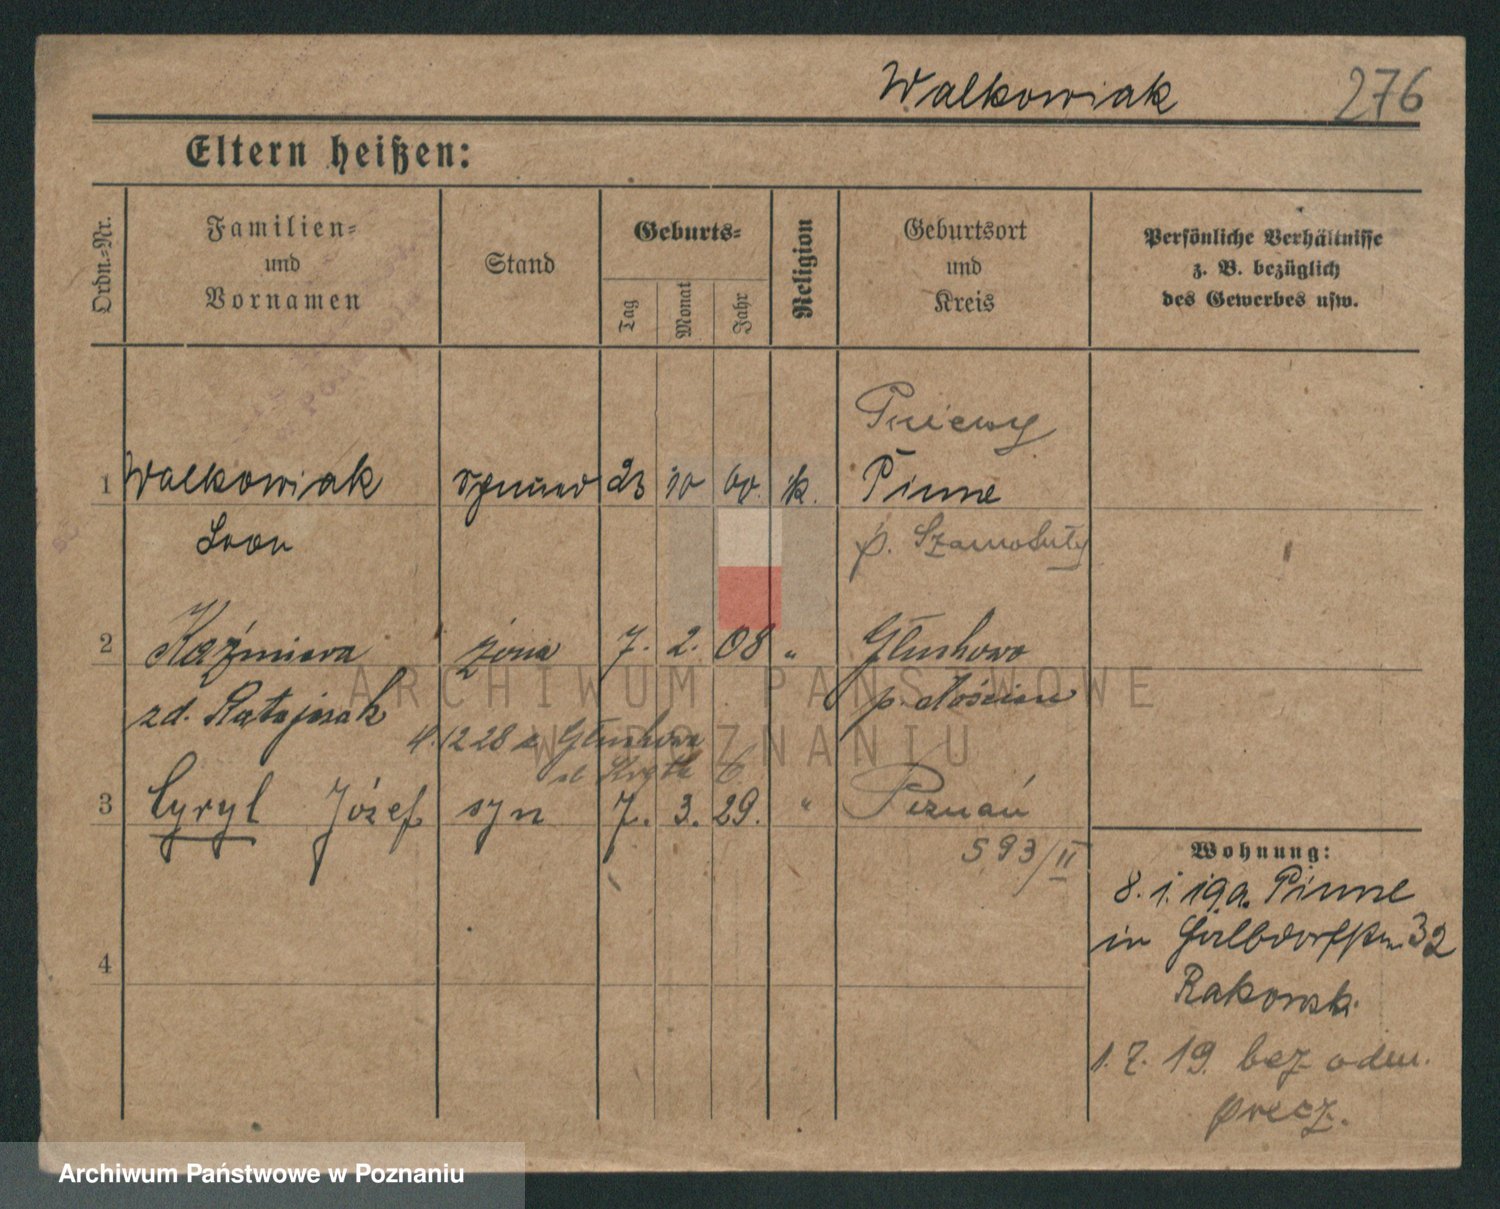 Walkowiak 276
Eltern heißen:
Ordn.-Nr.
Familien-
und
Vornamen
Stand
Geburts-
Tag
Monat
Jahr
Religion
Geburtsort
und
Kreis
Persönliche Verhältnisse
z. B. bezüglich
des Gewerbes usw.
Pniewy
1 Walkowiak 23 10 00. k. Pinne
Leon p. Szamotuły
2 Kaźmiera żona 7. 2. 08 " Głuchowo
zd. Ratajczak p. Kościan
4.12 28 z Głuchowa
3 Cyryl Józef syn 7. 3. 29. " Poznań
593/II
4
Wohnung:
8. 1. 19 a. Pinne
in 32
Rakowsk
1. 7. 19 bez odm.
przez.
ARCHIWUM PAŃSTWOWE
W POZNANIU
Archiwum Państwowe w Poznaniu